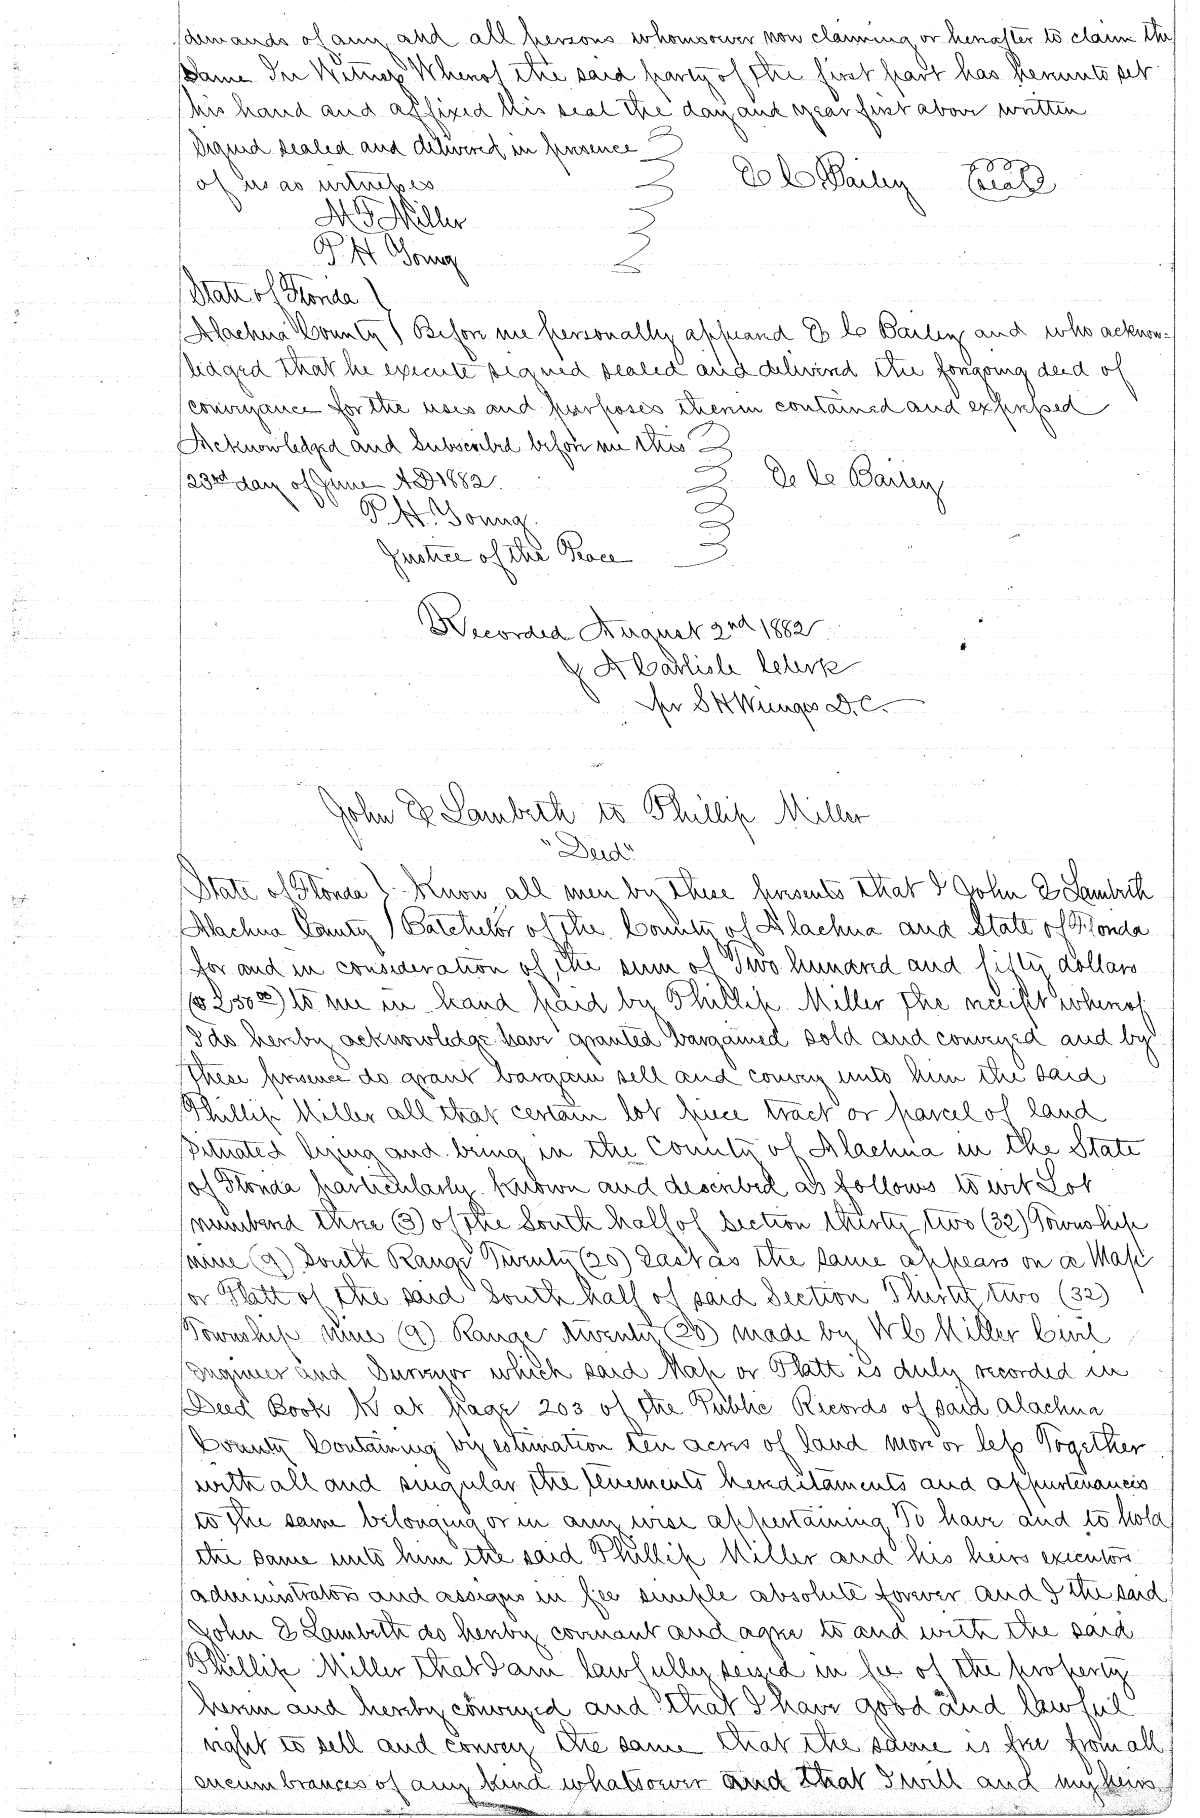 demands of any and all persons whomsoever now claiming or hereafter to claim the
same In Witness Whereof the said party of the first part has hereunto set
his hand and affixed his seal the day and year first above written
Signed sealed and delivered in presence
of us as witnesses E C Bailey Seal
M F Miller
P H Young
State of Florida
Alachua County Before me personally appeared E C Bailey and who acknow=
ledged that he execute signed sealed and delivered the foregoing deed of
conveyance for the uses and purposes therein contained and expressed
Acknowledged and Subscribed before me this
23rd day of June A D 1882. E C Bailey
P. H. Young.
Justice of the Peace
Recorded August 2nd 1882
J A Carlisle Clerk
per S H Wienges D.C.
John E Lambeth to Phillip Miller
"Deed"
State of Florida } Know all men by these presents that I John E Lambeth
Alachua County } Batchelor of the County of Alachua and State of Florida
for and in consideration of the sum of Two hundred and fifty dollars
($250 00) to me in hand paid by Phillip Miller the receipt whereof
I do hereby acknowledge have granted bargained sold and conveyed and by
these presence do grant bargain sell and convey unto him the said
Phillip Miller all that certain lot piece tract or parcel of land
situated lying and being in the County of Alachua in the State
of Florida particularly known and described as follows to wit Lot
numbered three (3) of the South half of Section thirty two (32) Township
nine (9) South Range Twenty (20) East as the same appears on a Map
or Platt of the said South half of said Section Thirty two (32)
Township nine (9) Range twenty (20) made by W C Miller Civil
Engineer and Surveyor which said Map or Platt is duly recorded in
Deed Book K at page 203 of the Public Records of said Alachua
County Containing by estimation ten acres of land more or less Together
with all and singular the tenements hereditaments and appurtenances
to the same belonging or in any wise appertaining To have and to hold
the same unto him the said Phillip Miller and his heirs executors
administrators and assigns in fee simple absolute forever and I the said
John E Lambeth do hereby covenant and agree to and with the said
Phillip Miller that I am lawfully seized in fee of the property
herein and hereby conveyed and that I have good and lawful
right to sell and convey the same that the same is free from all
encumbrances of any kind whatsoever and that I will and my heirs